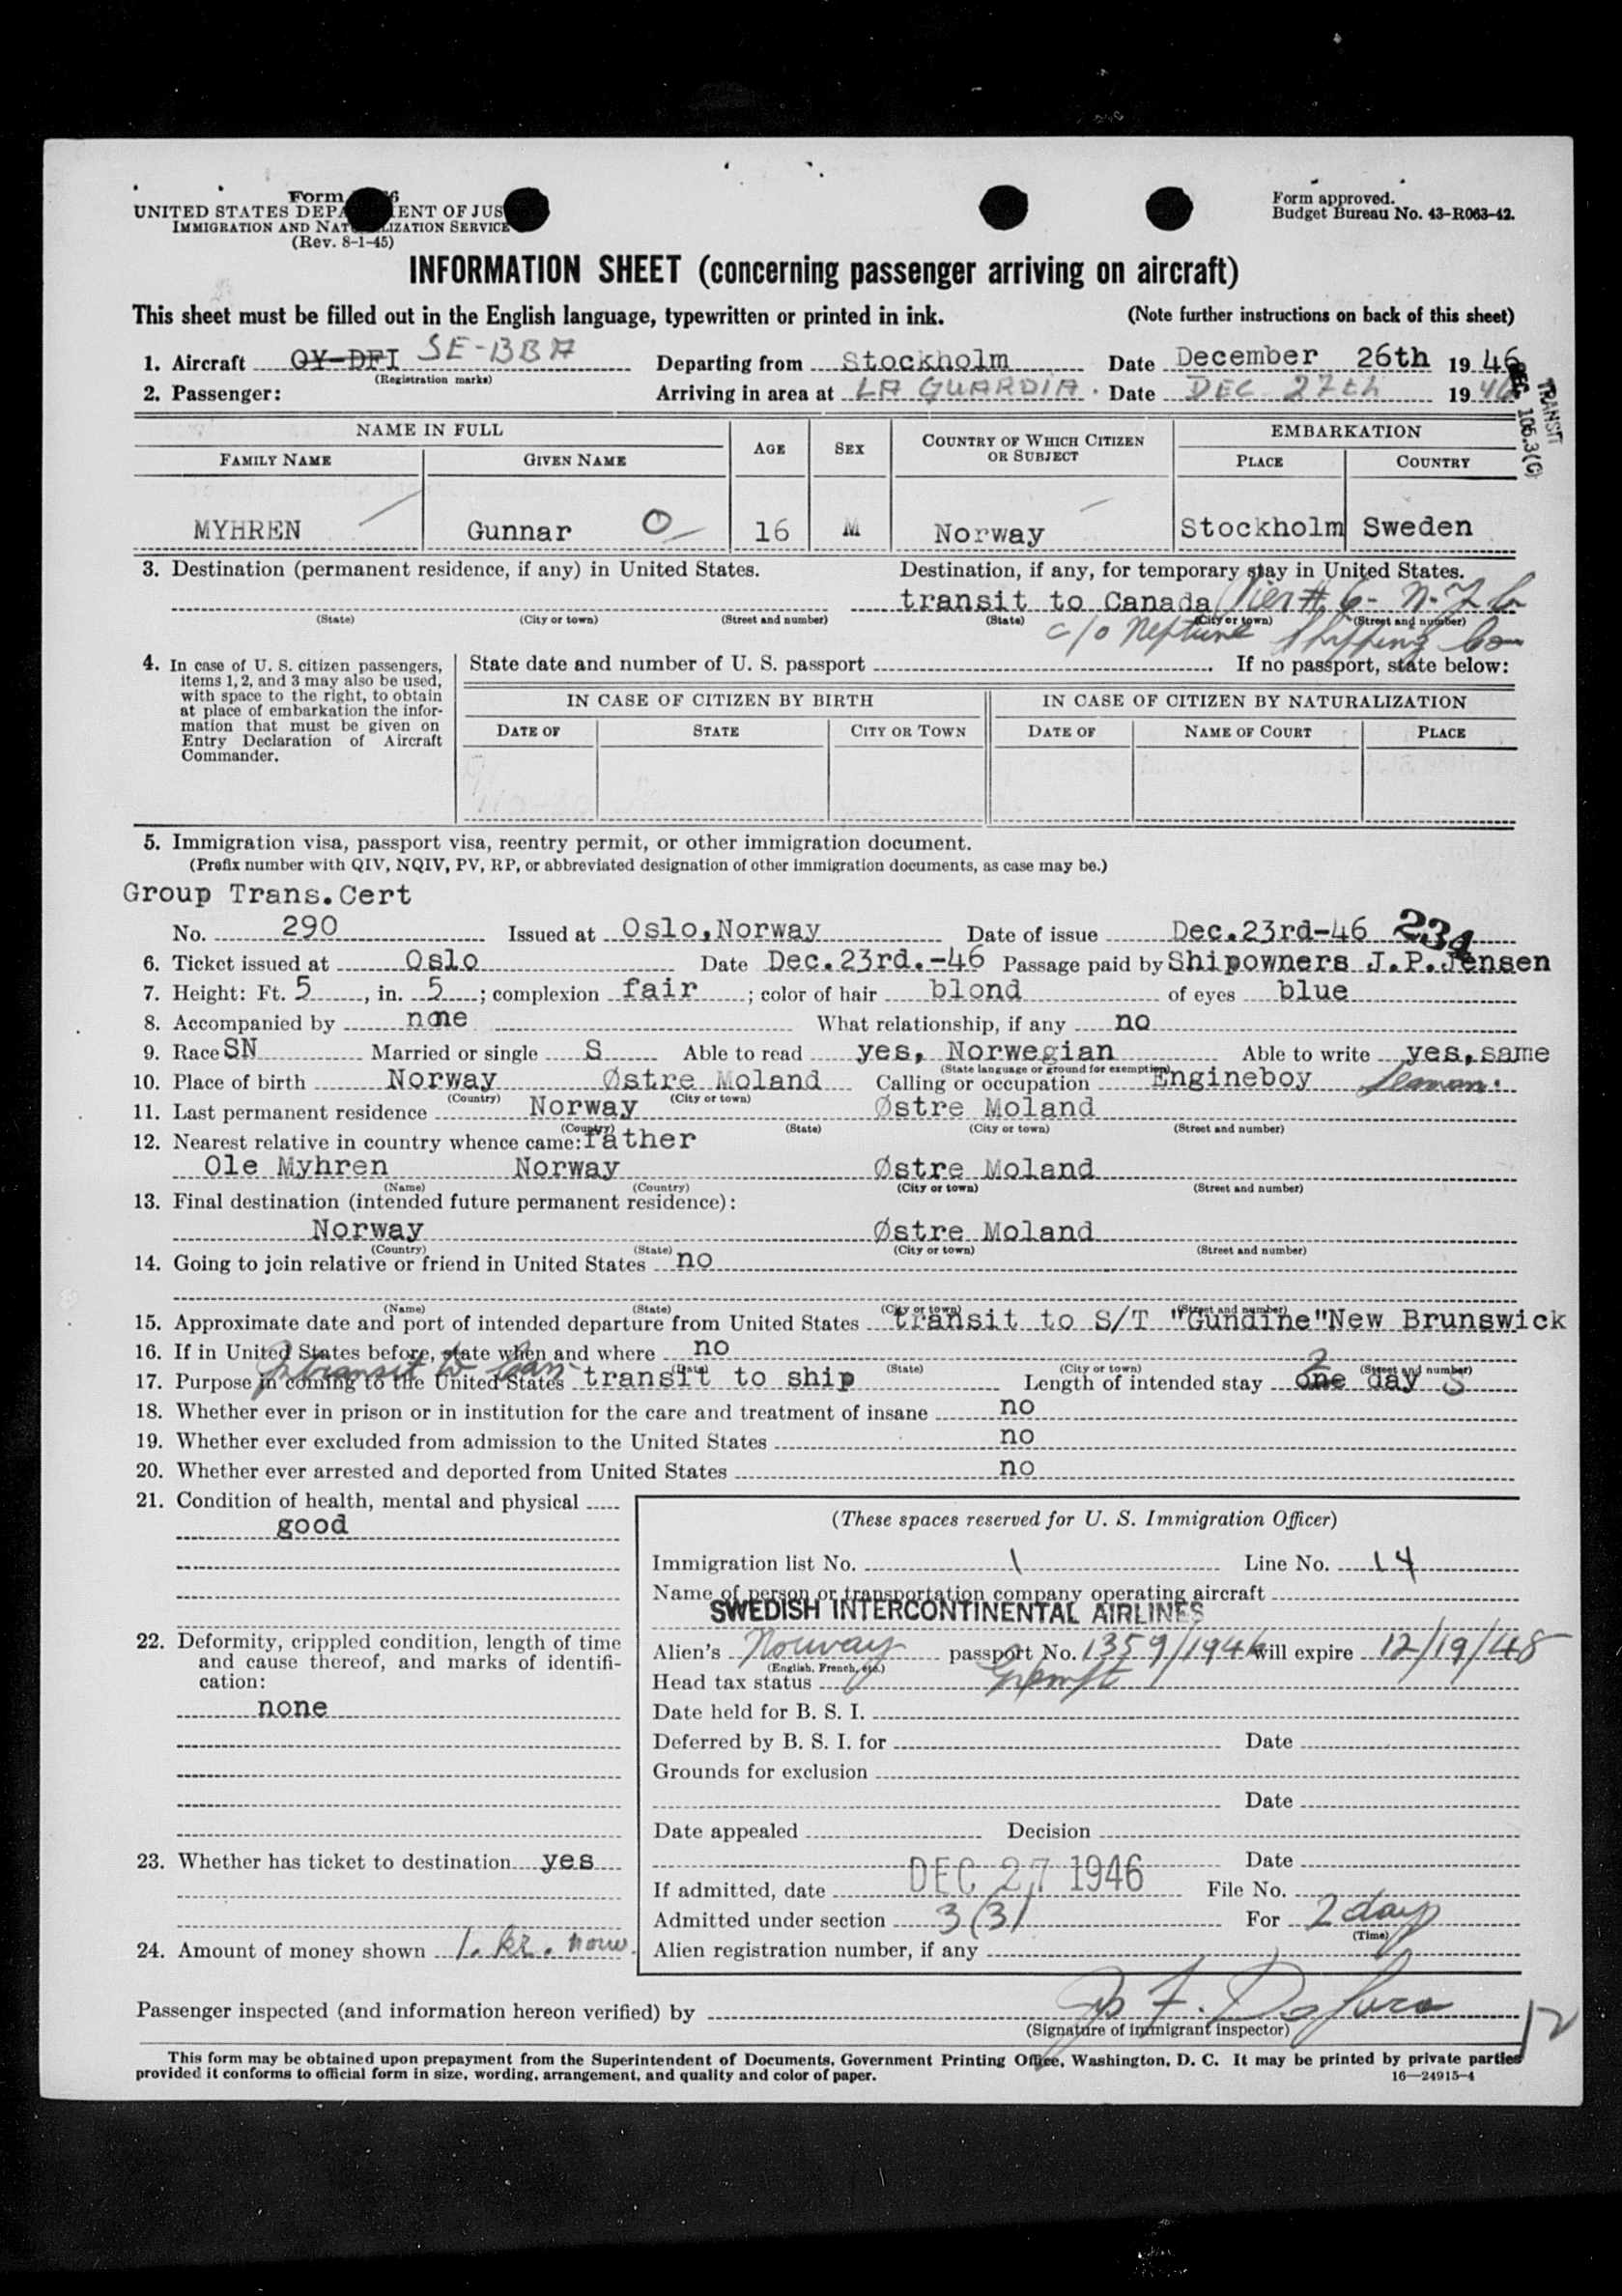 Form
UNITED STATES DEPA MENT OF JUS
IMMIGRATION AND NAT LIZATION SERVICE
(Rev. 8-1-45)
Form approved.
Budget Bureau No. 43-R063-42.
INFORMATION SHEET (concerning passenger arriving on aircraft)
This sheet must be filled out in the English language, typewritten or printed in ink. (Note further instructions on back of this sheet)
1. Aircraft OY-DFI SE-BBA Departing from Stockholm Date December 26th 19 46
(Registration marks)
2. Passenger: Arriving in area at LA GUARDIA. Date DEC 27th 19 46
TRANSIT
105.3(C)
NAME IN FULL AGE SEX COUNTRY OF WHICH CITIZEN OR SUBJECT EMBARKATION
FAMILY NAME GIVEN NAME PLACE COUNTRY
MYHREN Gunnar O 16 M Norway Stockholm Sweden
3. Destination (permanent residence, if any) in United States. Destination, if any, for temporary stay in United States.
transit to Canada Pier # 6- N.Y.
(State) (City or town) (Street and number) (State) (City or town) (Street and number)
c/o Neptune Shipping Co
4. In case of U. S. citizen passengers, items 1, 2, and 3 may also be used, with space to the right, to obtain at place of embarkation the information that must be given on Entry Declaration of Aircraft Commander.
State date and number of U. S. passport If no passport, state below:
IN CASE OF CITIZEN BY BIRTH IN CASE OF CITIZEN BY NATURALIZATION
DATE OF STATE CITY OR TOWN DATE OF NAME OF COURT PLACE
5. Immigration visa, passport visa, reentry permit, or other immigration document.
(Prefix number with QIV, NQIV, PV, RP, or abbreviated designation of other immigration documents, as case may be.)
Group Trans.Cert
No. 290 Issued at Oslo,Norway Date of issue Dec.23rd-46 234
6. Ticket issued at Oslo Date Dec.23rd.-46 Passage paid by Shipowners J.P.Jensen
7. Height: Ft. 5, in. 5; complexion fair; color of hair blond of eyes blue
8. Accompanied by none What relationship, if any no
9. Race SN Married or single S Able to read yes, Norwegian Able to write yes,same
(State language or ground for exemption)
10. Place of birth Norway Østre Moland Calling or occupation Engineboy Seaman.
(Country) (City or town)
11. Last permanent residence Norway Østre Moland
(Country) (State) (City or town) (Street and number)
12. Nearest relative in country whence came: father
Ole Myhren Norway Østre Moland
(Name) (Country) (City or town) (Street and number)
13. Final destination (intended future permanent residence):
Norway Østre Moland
(Country) (State) (City or town) (Street and number)
14. Going to join relative or friend in United States no
(Name) (State) (City or town) (Street and number)
15. Approximate date and port of intended departure from United States transit to S/T "Gundine"New Brunswick
16. If in United States before, state when and where no
(Date) (State) (City or town) (Street and number)
In transit to Can
17. Purpose in coming to the United States transit to ship Length of intended stay one 2 day s
18. Whether ever in prison or in institution for the care and treatment of insane no
19. Whether ever excluded from admission to the United States no
20. Whether ever arrested and deported from United States no
21. Condition of health, mental and physical
good
22. Deformity, crippled condition, length of time and cause thereof, and marks of identification:
none
23. Whether has ticket to destination yes
24. Amount of money shown 1. kr. norw.
(These spaces reserved for U. S. Immigration Officer)
Immigration list No. 1 Line No. 14
Name of person or transportation company operating aircraft
SWEDISH INTERCONTINENTAL AIRLINES
Alien's Norway passport No. 1359/1946 will expire 12/19/48
(English, French, etc.)
Head tax status Exempt
Date held for B. S. I.
Deferred by B. S. I. for Date
Grounds for exclusion
Date
Date appealed Decision
Date
If admitted, date DEC 27 1946 File No.
Admitted under section 3(3) For 2 days
(Time)
Alien registration number, if any
Passenger inspected (and information hereon verified) by
(Signature of immigrant inspector)
12
This form may be obtained upon prepayment from the Superintendent of Documents, Government Printing Office, Washington, D. C. It may be printed by private parties
provided it conforms to official form in size, wording, arrangement, and quality and color of paper. 16—24915-4